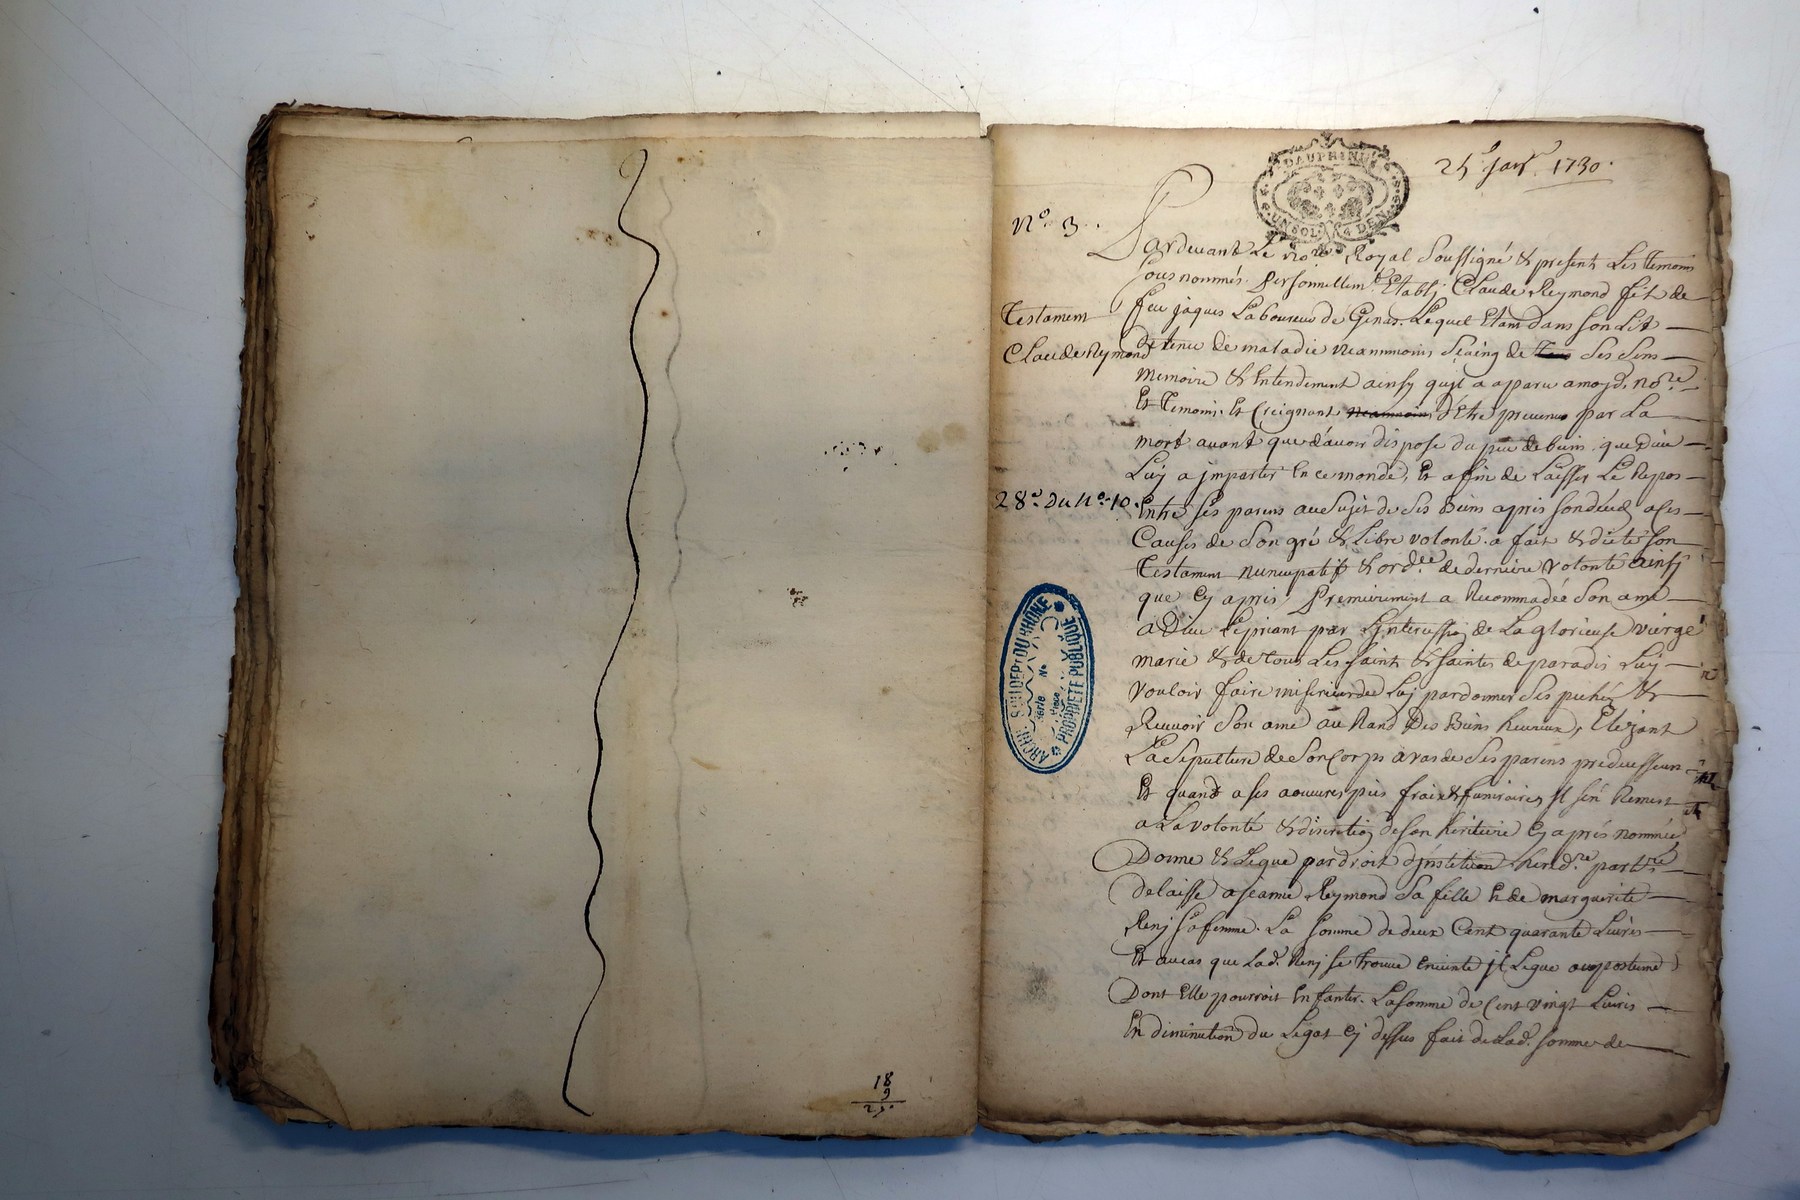 18
9
27
DAUPHINÉ
UN SOL 4 DEN
25e Janr 1730.
No. 3.
Pardevant Le nore Royal Soussigné & present Les temoins
sous nommés. personnellemt Etably Claude Reymond fils de
Testament
feu jaques Laboureur de Genas. Lequel Etant dans son Lit
Claude Reymond
detenu de maladie neanmmoins de ses sens
memoire & Entendement ainsy quil a aparu amoyd. nore
Et temoins. Et Creignant neanmoins d'Etre prevenu par La
mort avant que d'avoir dispose du peu de biens que Dieu
Luy a jmpartis En ce monde, Et afin de Laisser Le Repos
28e Du No. 10.
Entre ses parens au Sujet de Ses Biens apres son deced a ses
Causes de Son gré & Libre volonté a fait & dicté son
Testament nuncupatif & ordee de derniere volonté ainsy
que Cy apres, Premierement a Recommadée Son ame
a Dieu Le priant par L'jntercession de La glorieuse vierge
marie & de tous Les Saints & Saintes de paradis Luy
vouloir faire misericorde Luy pardonner Ses pechéz &
Recevoir Son ame au Rand Des Biens heureux, Elizant
La Sepulture de Son Corps de Ses parens predecesseurs
Et quant a ses aouvres pies fraix & funeraires jl s'en Remest
a La volonté & discretion de son heritiere Cy aprés nommée
Donne & Legue par droit d'jnstitution heredre partre
delaisse a jeanne Reymond Sa fille & de marguerite
Renj Sa femme. La Somme de deux Cent quarante Livres
Et au cas que Lad. Renj se trouve Enceinte jl Legue au postume
Dont Elle pourroit Enfanter. La Somme de Cent vingt Livres
En diminution du Legat Cy dessus fait de Lad. Somme de
ARCHIVES DU DEPT DU RHÔNE
Série No
Pièce
PROPRIÉTÉ PUBLIQUE